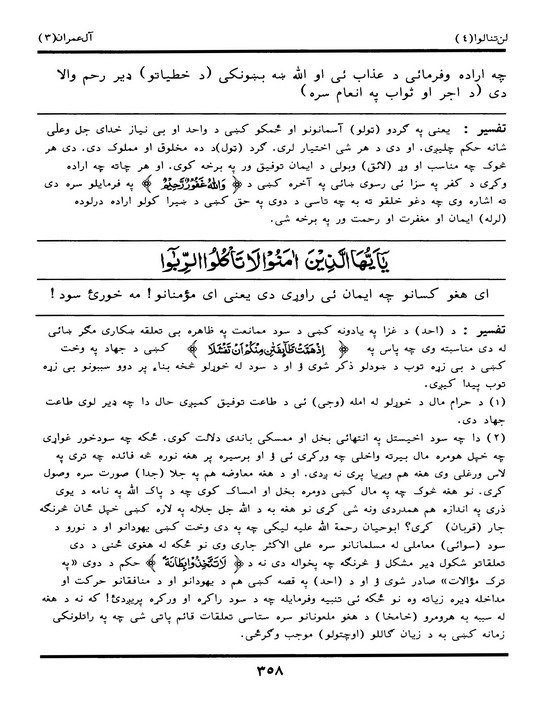 لن تنالوا(٤) آل عمران(٣)
چه اراده وفرمائی د عذاب ئی او الله ښه بښونکی (د خطیاتو) ډیر رحم والا
دی (د اجر او ثواب په انعام سره)
تفسیر : یعنی په ګردو (تولو) آسمانونو او ځمکو کښی د واحد او بی نیاز خدای جل وعلی
شانه حکم چلیږی. او دی د هر شی اختیار لری. ګرد (تول)د ده مخلوق او مملوک دی. دی هر
څوک چه مناسب او وړ (لائق) وبولی د ایمان توفیق ور په برخه کوی. او هر چاته چه اراده
وکړی د کفر په سزا ئی رسوی ښائی په آخره کښی د ﴿ وَاللّٰهُ غَفُوْرٌ رَّحِيْمٌ ﴾ په فرمایلو سره دی
ته اشاره وی چه دغو خلقو ته به چه تاسی د دوی په حق کښی د ښیرا کولو اراده درلوده
(لرله) ایمان او مغفرت او رحمت ور په برخه شی.
يٰٓاَيُّهَا الَّذِيْنَ اٰمَنُوْا لَا تَاْكُلُوا الرِّبٰٓوا
ای هغو کسانو چه ایمان ئی راوړی دی یعنی ای مؤمنانو! مه خورئ سود!
تفسیر : د (احد) د غزا په یادونه کښی د سود ممانعت په ظاهره بی تعلقه ښکاری مګر ښائی
له دی مناسبته وی چه پاس په ﴿ اِذْهَمَّتْ طَّآىِٕفَتٰنِ مِنْكُمْ اَنْ تَفْشَلَا ﴾ کښی د جهاد په وخت
کښی د بی زړه توب د ښودلو ذکر شوی ؤ او د سود له خوړلو څخه بناء پر دوو سببونو بی زړه
توب پیدا کیږی.
(١) د حرام مال د خوړلو له امله (وجی) ئی د طاعت توفیق کمیږی حال دا چه ډیر لوی طاعت
جهاد دی.
(٢) دا چه سود اخیستل په انتهائی بخل او ممسکی باندی دلالت کوی. ځکه چه سودخور غواړی
چه خپل هومره مال بیرته واخلی چه ورکړی ئی ؤ او برسیره پر هغه نوره څه فائده چه تری په
لاس ورغلی وی هغه هم ویړیا پری نه ږدی. او د هغه معاوضه هم په جلا (جدا) صورت سره وصول
کړی. نو هغه څوک چه په مال کښی دومره بخل او امساک کوی چه د پاک الله په نامه د یوی
ذری په اندازه هم همدردی ونه شی کړی نو هغه به د الله جل جلاله په لاره کښی خپل ځان څرنګه
جار (قربان) کړی؟ ابوحیان رحمة الله علیه لیکی چه په دی وخت کښی یهودانو او د نورو د
سود (سوائی) معاملی له مسلمانانو سره علی الاکثر جاری وی نو ځکه له هغوی ځنی د دی
تعلقاتو شکول ډیر مشکل ؤ څرنګه چه پخواله دی نه د ﴿ لَا تَتَّخِذُوْا بِطَانَةً ﴾ حکم د دوی «په
ترک مؤالات» صادر شوی ؤ او د (احد) په قصه کښی هم د یهودانو او د منافقانو حرکت او
مداخله ډیره زیاته وه نو ځکه ئی تنبیه وفرمایله چه د سود راکړه او ورکړه پریږدئ! که نه د هغه
له سببه به هرومرو (خامخا) د هغو ملعونانو سره ستاسی تعلقات قائم پاتی شی چه په راتلونکی
زمانه کښی به د زیان ګاللو (اوچتولو) موجب وګرځی.
٣٥٨